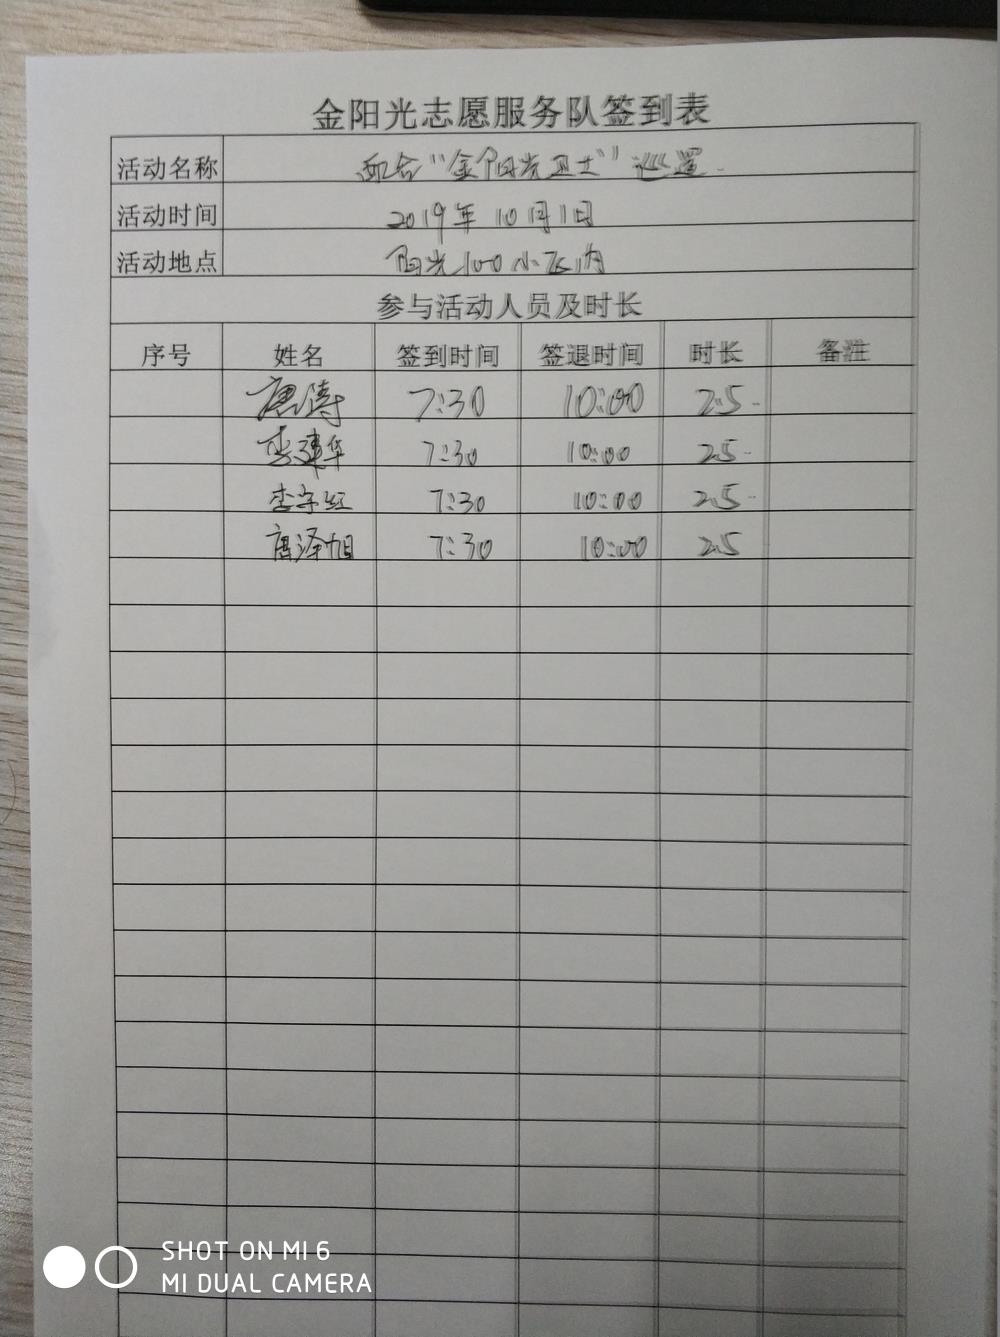 金阳光志愿服务队签到表
活动名称 配合“金阳光卫士”巡逻
活动时间 2019年10月1日
活动地点 阳光100小区内
参与活动人员及时长
序号 姓名 签到时间 签退时间 时长 备注
唐涛 7:30 10:00 2.5
李建华 7:30 10:00 2.5
李宇红 7:30 10:00 2.5
唐泽旭 7:30 10:00 2.5
SHOT ON MI 6
MI DUAL CAMERA